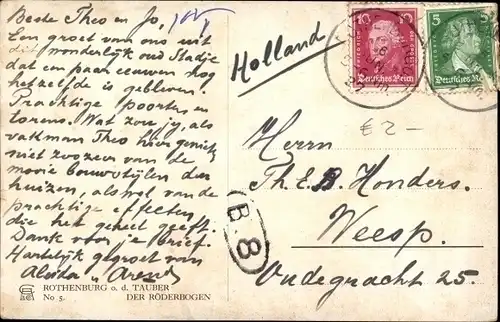 Beste Theo en Jo,
Een groet van ons uit
dit wonderlijk oud stadje
dat een paar eeuwen nog
hetzelfde is gebleven.
Prachtige poorten,
torens. Wat zou jij, als
vakman Theo hier genieten
niet zoozeer van de
mooie bouwstijlen der
huizen, als wel van de
prachtige effecten
die het geheel geeft.
Dank voor je brief.
Hartelijk gegroet van
Aleida
ROTHENBURG o. d. TAUBER
No 5. DER RÖDERBOGEN
Holland
10
Deutsches Reich
5
Deutsches Re
€ 2-
Herrn
Th. E. B. Honders.
Weesp.
Oudegracht 25.
B 8